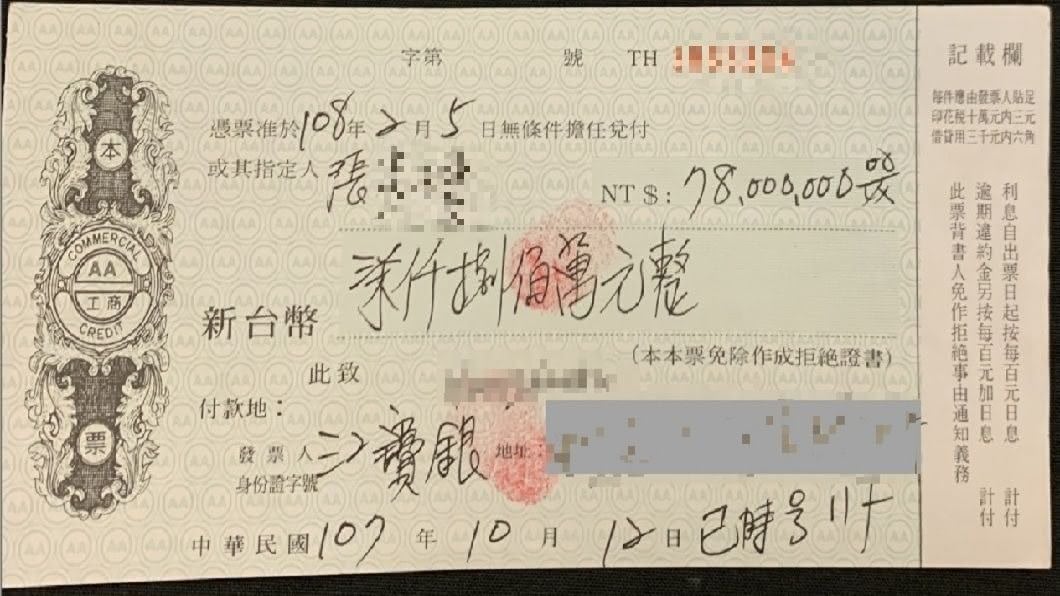 字第 號 TH
憑票准於108年2月5日無條件擔任兌付
或其指定人 張
NT $: 78,000,000
柒仟捌佰萬元整
新台幣
(本本票免除作成拒絕證書)
此致
付款地：
發票人 寶銀 地址：
身份證字號
中華民國107年10月12日
本
COMMERCIAL
AA
工商
CREDIT
票
記載欄
每件應由發票人貼足
印花稅十萬元內三元
借貸用三千元內六角
利息自出票日起按每百元日息 計付
逾期違約金另按每百元加日息 計付
此票背書人免作拒絕事由通知義務